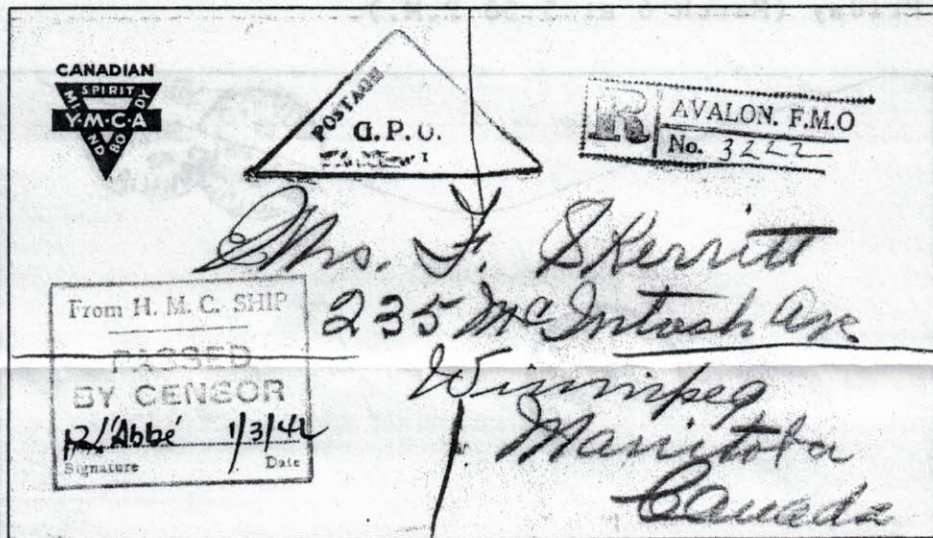 Friday (March 6 at 3:30 P.M.).
CANADIAN
SPIRIT
MIND BODY
Y·M·C·A
POSTAGE
G.P.O.
R
AVALON. F.M.O
No. 3222
Mrs. F. Skerritt
235 McIntosh Ave
Winnipeg
Manitoba
Canada
From H. M. C. SHIP
PASSED
BY CENSOR
L'Abbé 1/3/42
Signature Date